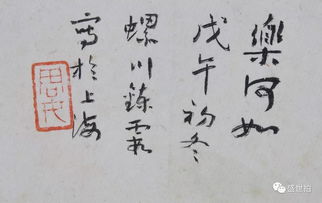 樂何如
戊午初冬
螺川鍊霞
寫於上海
盛世拍